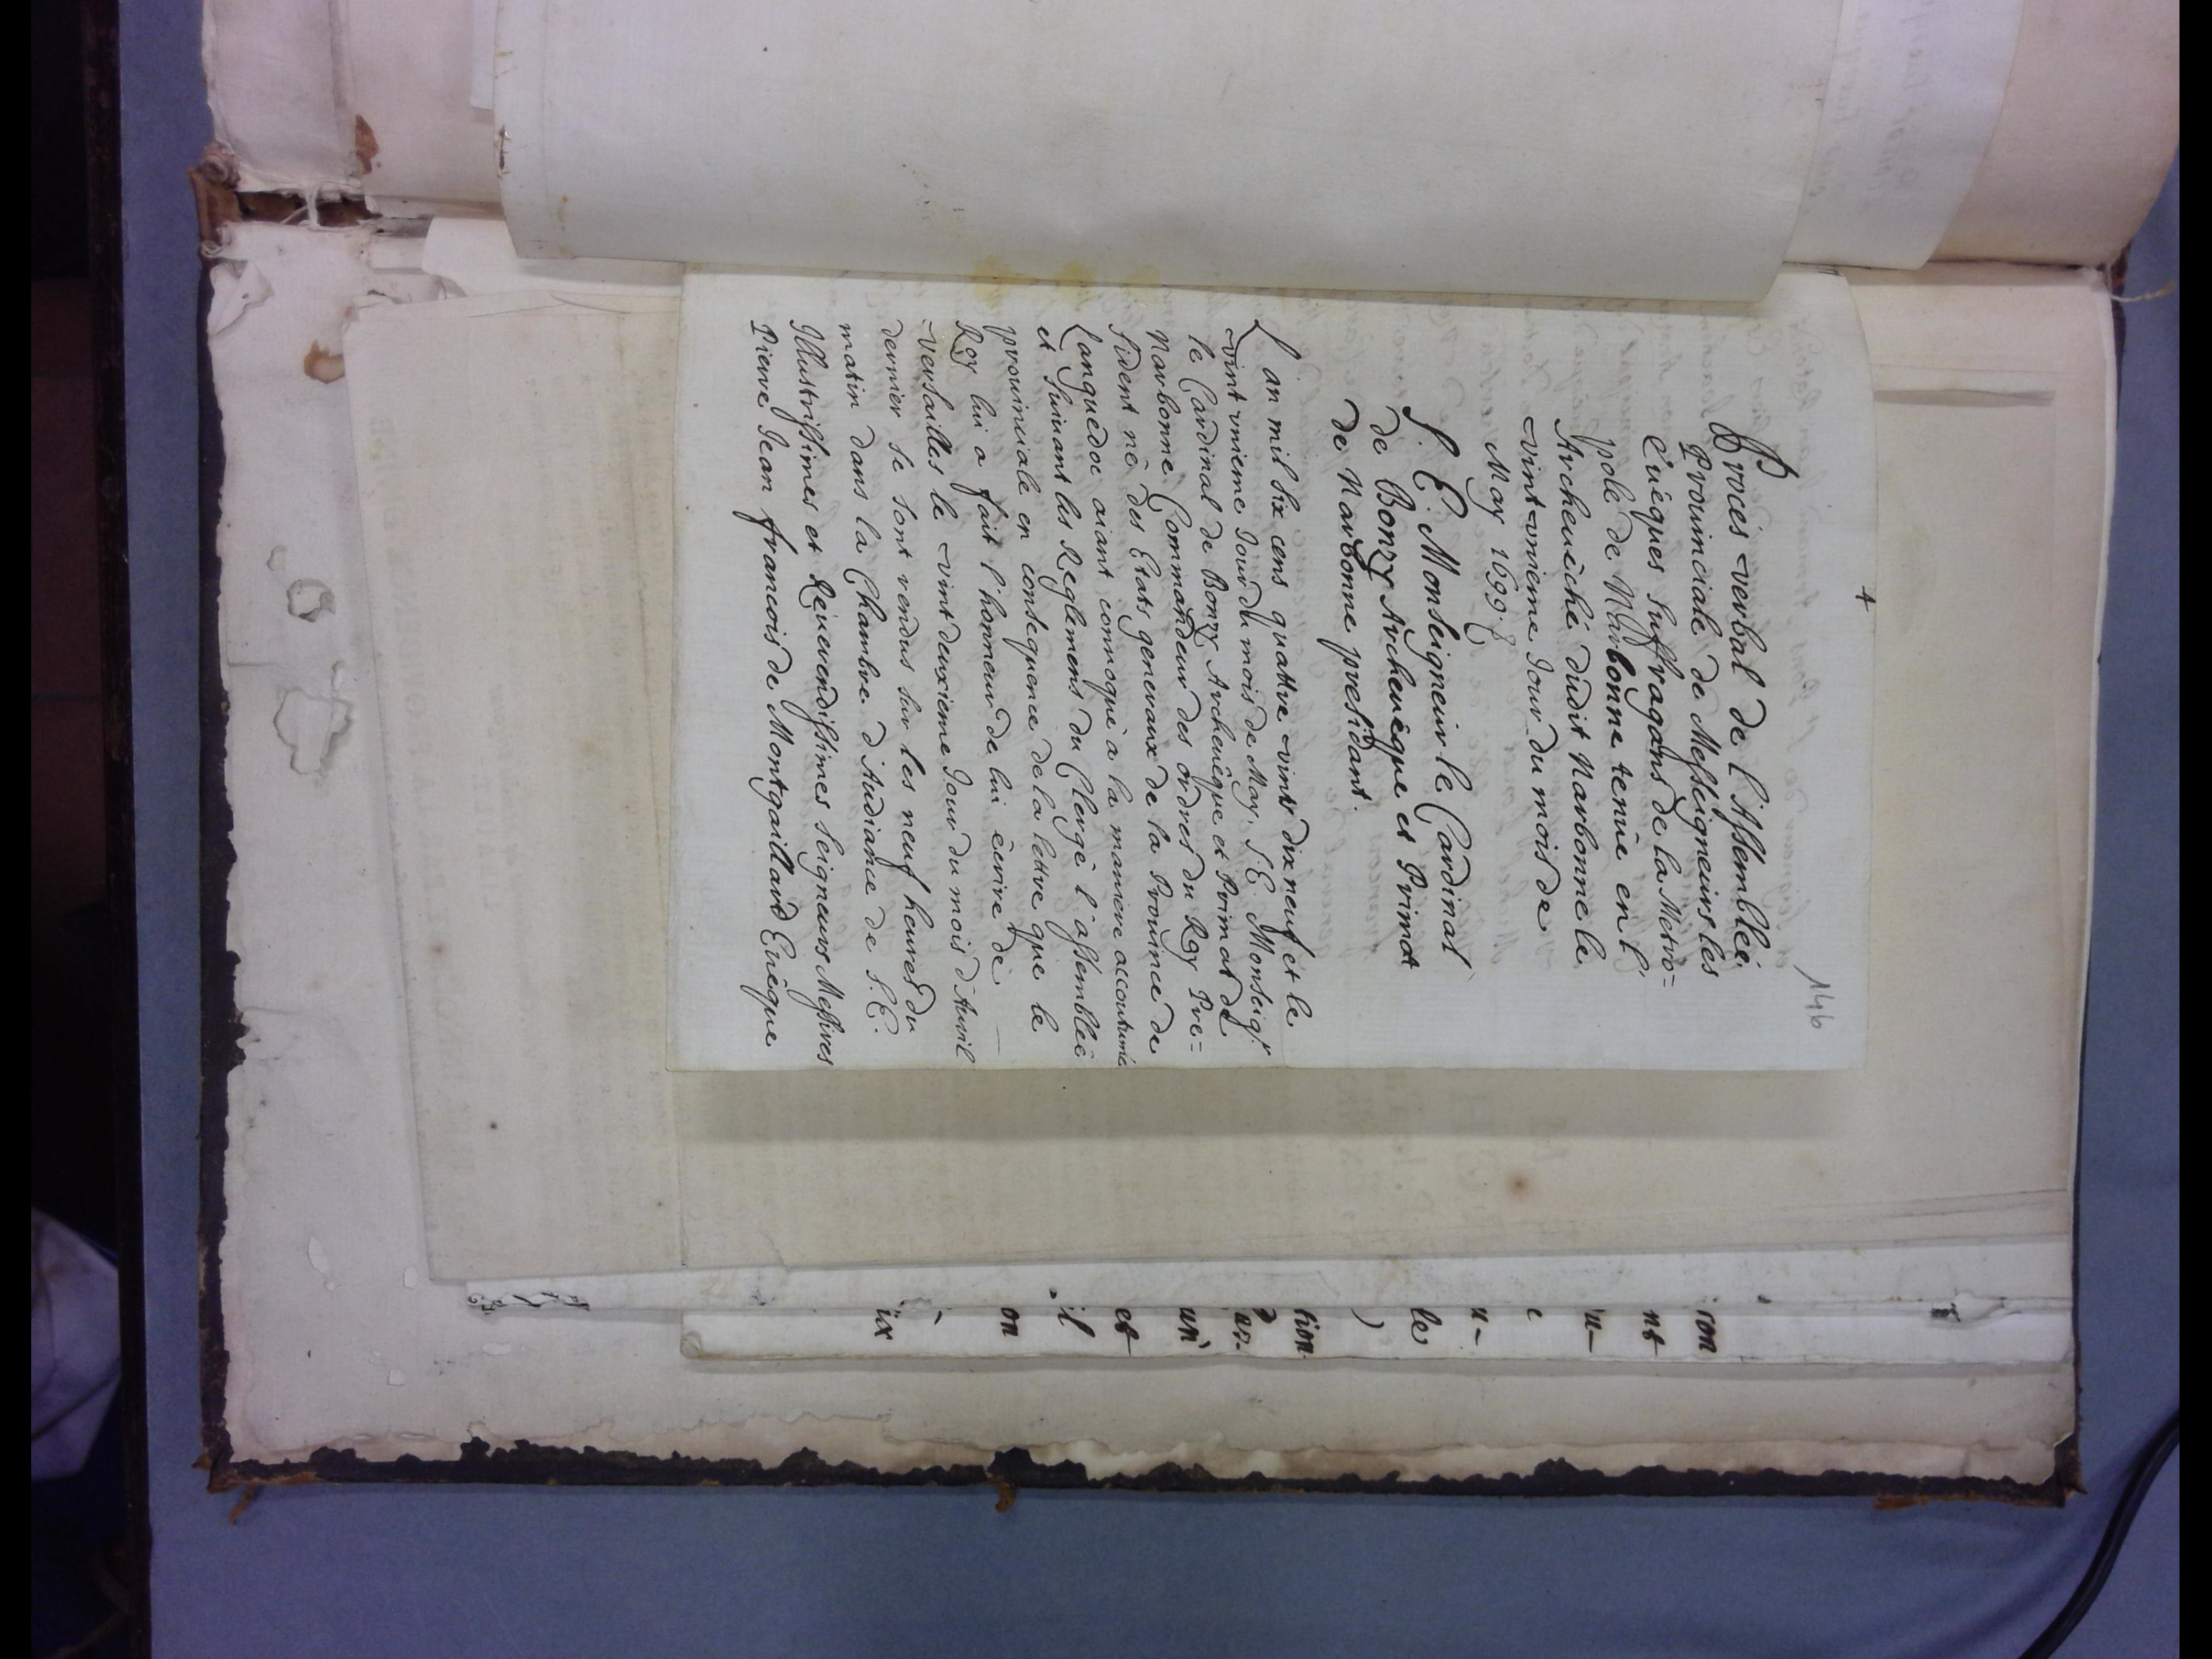 4
146
Procés verbal de l'Assembleé
Prouinciale de Messeigneurs les
Euêques Suffragans de la Metro=
pole de Narbonne tenüe en l'
Archeuêché dudit Narbonne le
vint-vnieme Jour du mois de
May 1699.
S. E. Monseigneur le Cardinal
de Bonzy Archeuêque et Primat
de Narbonne presidant.
L'an mil six cens quattre vints dix neuf et le
vint vnieme Jour du mois de May, S. E. Monseigr
le Cardinal de Bonzy Archeuêque et Primat de
Narbonne Commandeur des ordres du Roy Pre=
sident né des Etats generaux de la Prouince de
Languedoc aiant conuoqué a la maniere accoutumée
et Suiuant les Reglemens du Clergé l'assembleé
prouinciale en consequence de la lettre que le
Roy lui a fait l'honneur de lui écrire de
versailles le vint deuxieme Jour du mois d'Auril
dernier se sont rendus sur les neuf heures du
matin dans la Chambre d'Audiance de S. E.
Illustrissimes et Reuerendissimes seigneurs Messires
Pierre Jean francois de Montgaillard Euêque
ion
nt
u-
e
u-
le
)
tion
ar-
un
et
il
on
ux